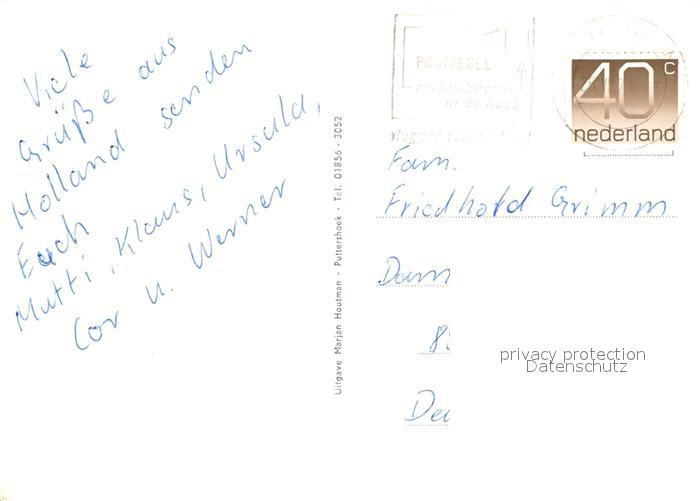 Viele
Grüße aus
Holland senden
Euch
Mutti, Klaus, Ursula,
Cor u. Werner
Uitgave Marjan Houtman - Puttershoek - Tel. 01856 - 3052
POSTZEGEL
rechts boven-
in de hoek
vlugger
40 c
nederland
Fam.
Friedhold Grimm
privacy protection
Datenschutz